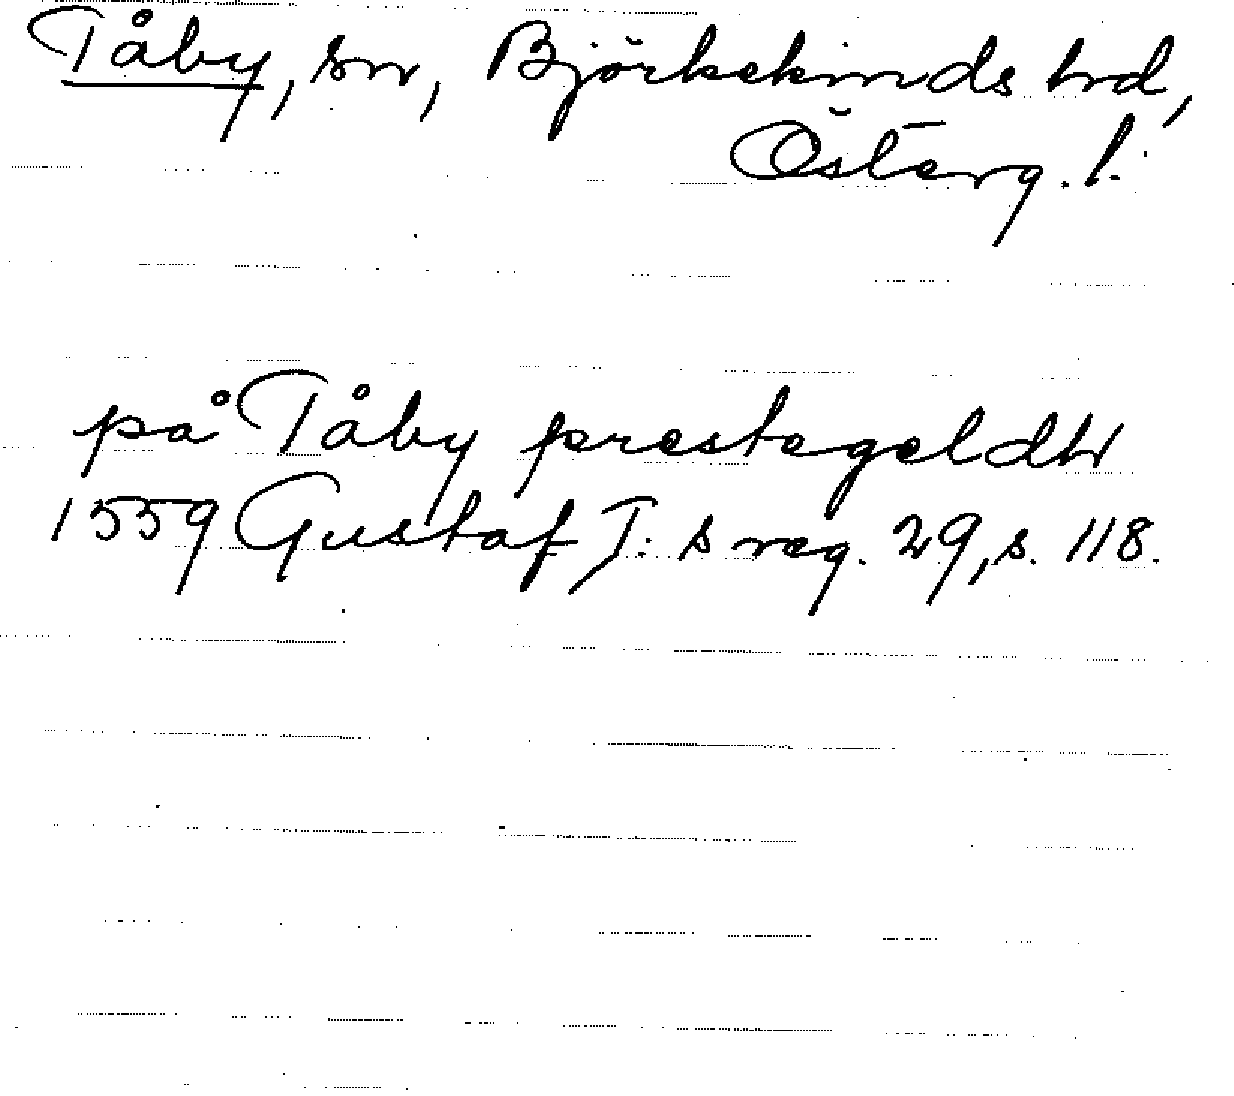 Tåby, sn, Björkekinds hd,
Österg. l.
på Tåby prestegeldh
1559 Gustaf I:s reg. 29, s. 118.